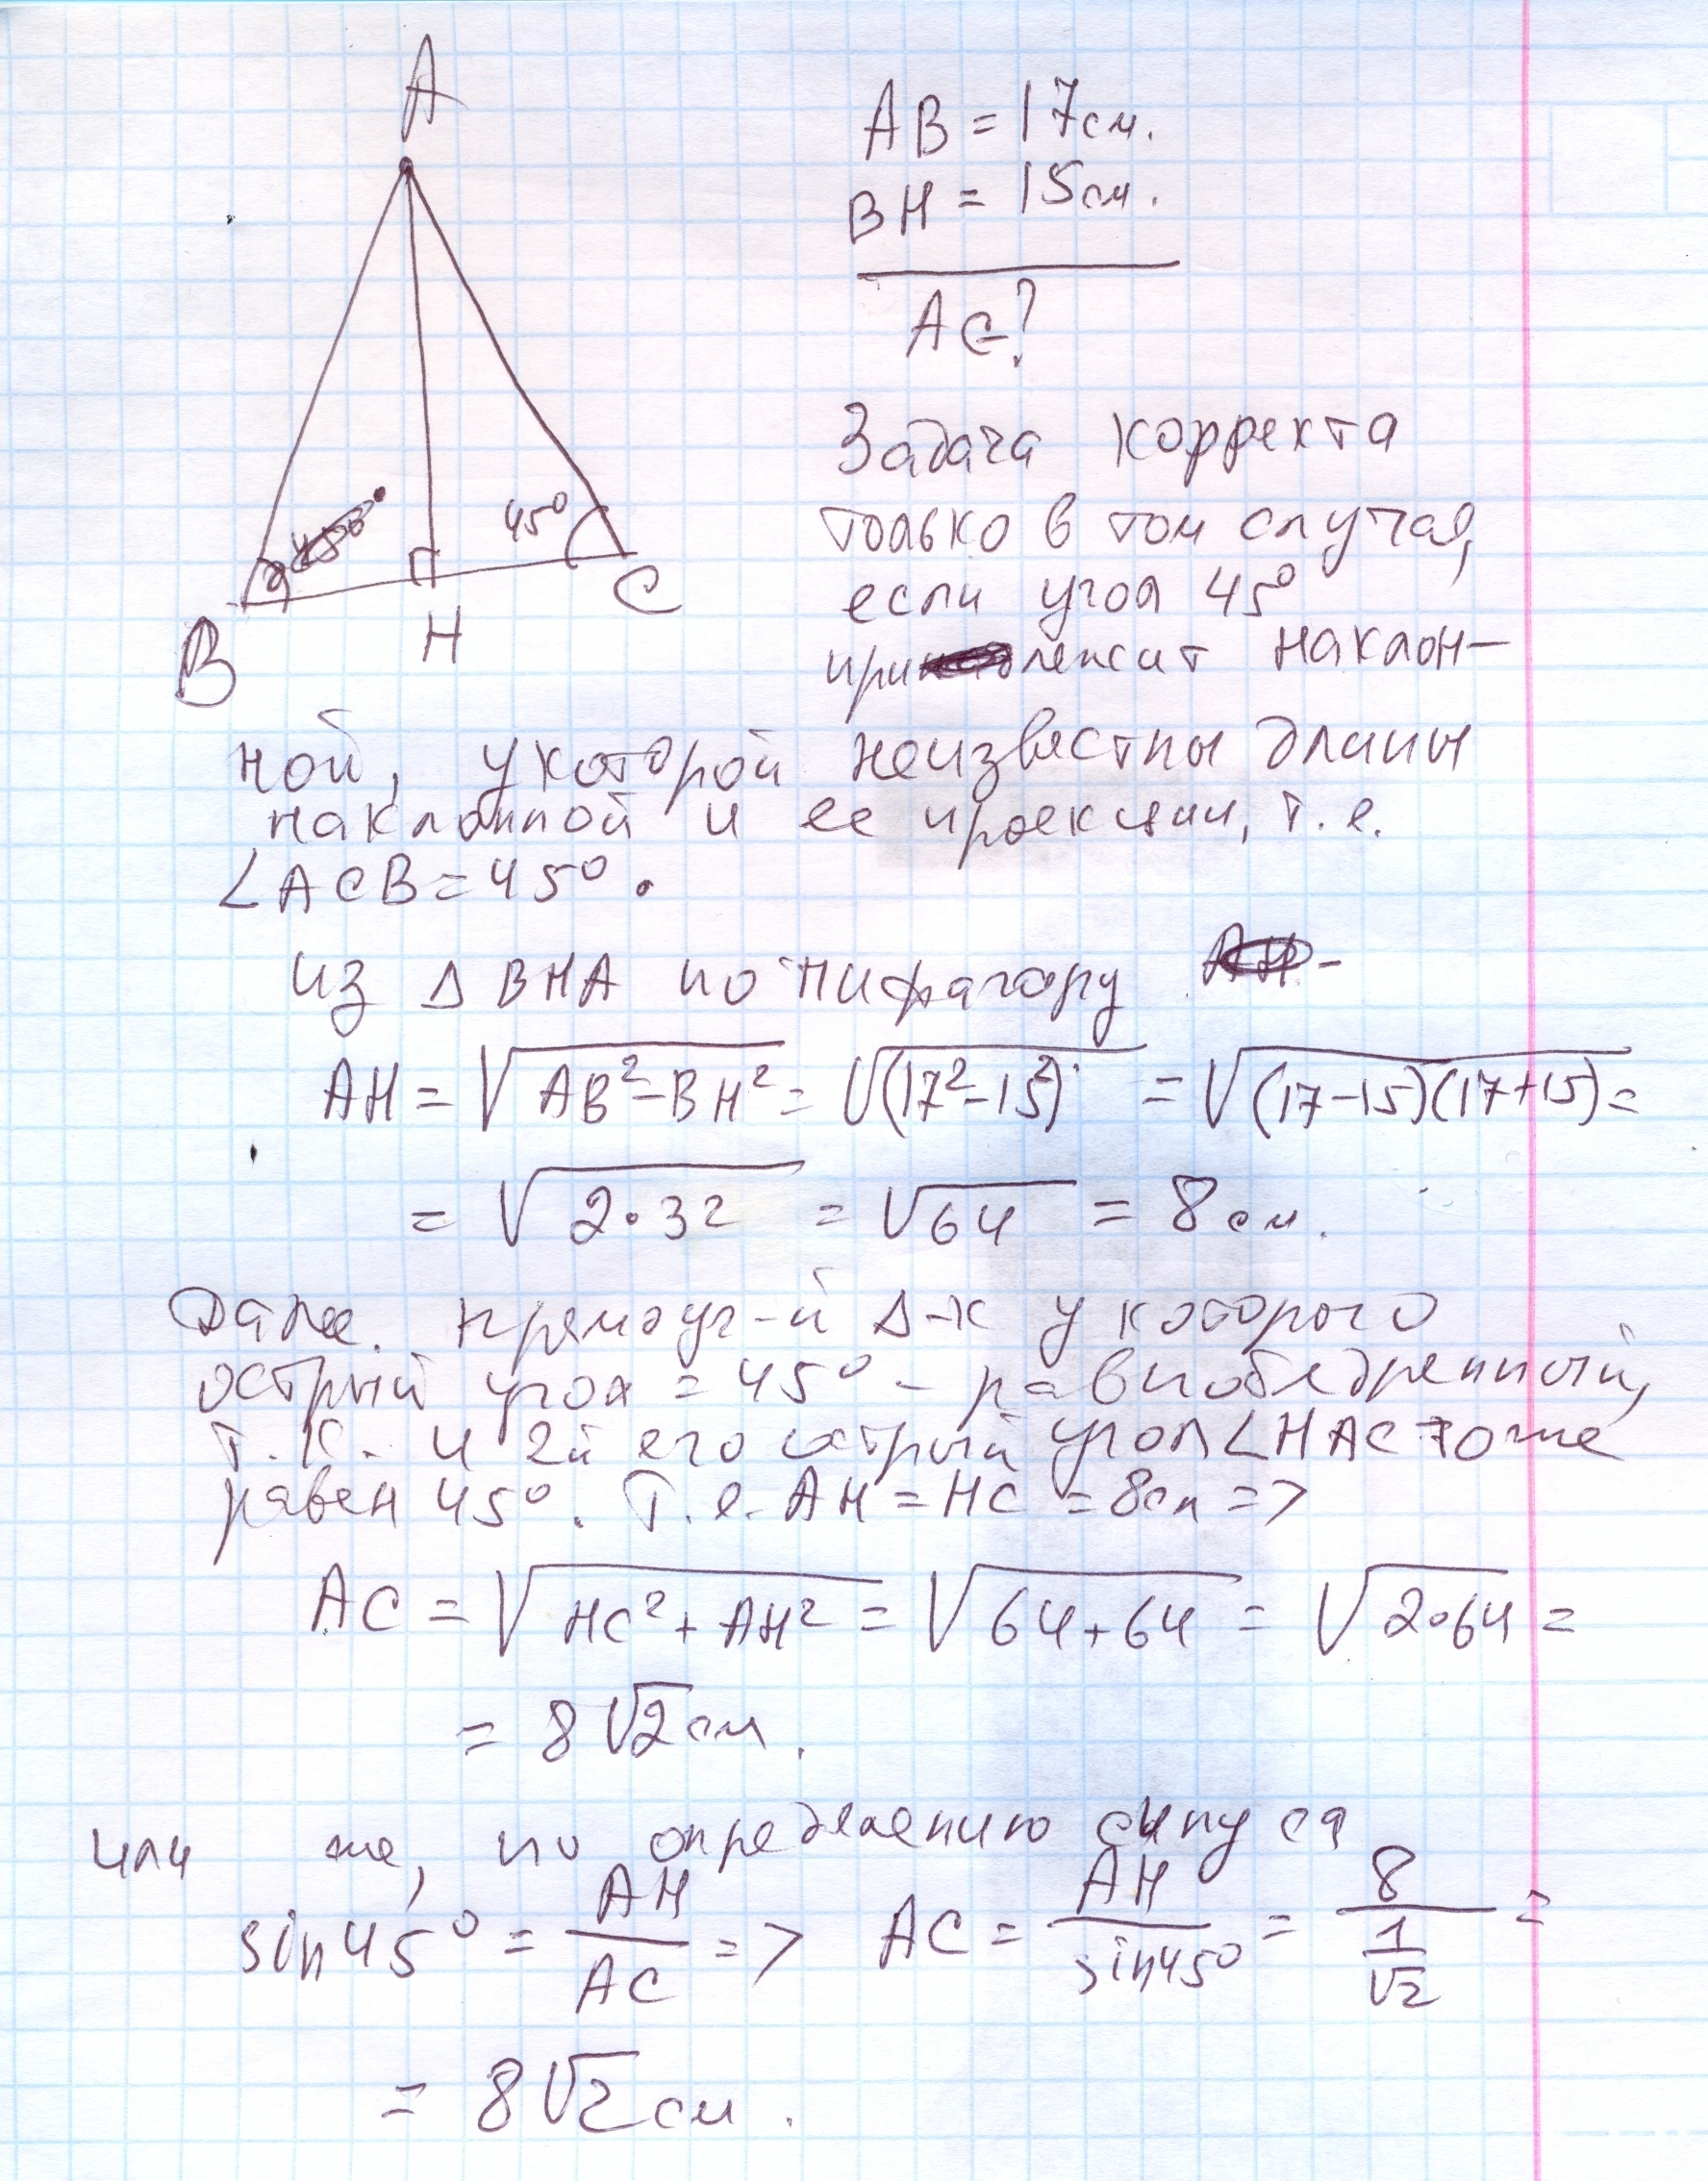 A
AB = 17см.
BH = 15см.
AC-?
45°
B
H
C
Задача корректа
только в том случая,
если угол 45°
прилежит наклон-
ной, у которой неизвестны длины
наклонной и ее проекции, т.е.
∠ACB = 45°.
из ΔBHA по пифагору
AH = √(AB² - BH²) = √(17² - 15²) = √((17-15)(17+15)) =
= √(2·32) = √64 = 8 см.
Далее. прямоуг-й Δ-к у которого
острый угол = 45° - равнобедренный,
т.к. и 2й его острый угол ∠HAC тоже
равен 45°. Т.е. AH = HC = 8см =>
AC = √(HC² + AH²) = √(64+64) = √(2·64) =
= 8√2 см.
или же, по определению синуса
sin45° = AH/AC => AC = AH/sin45° = 8/(1/√2) =
= 8√2 см.